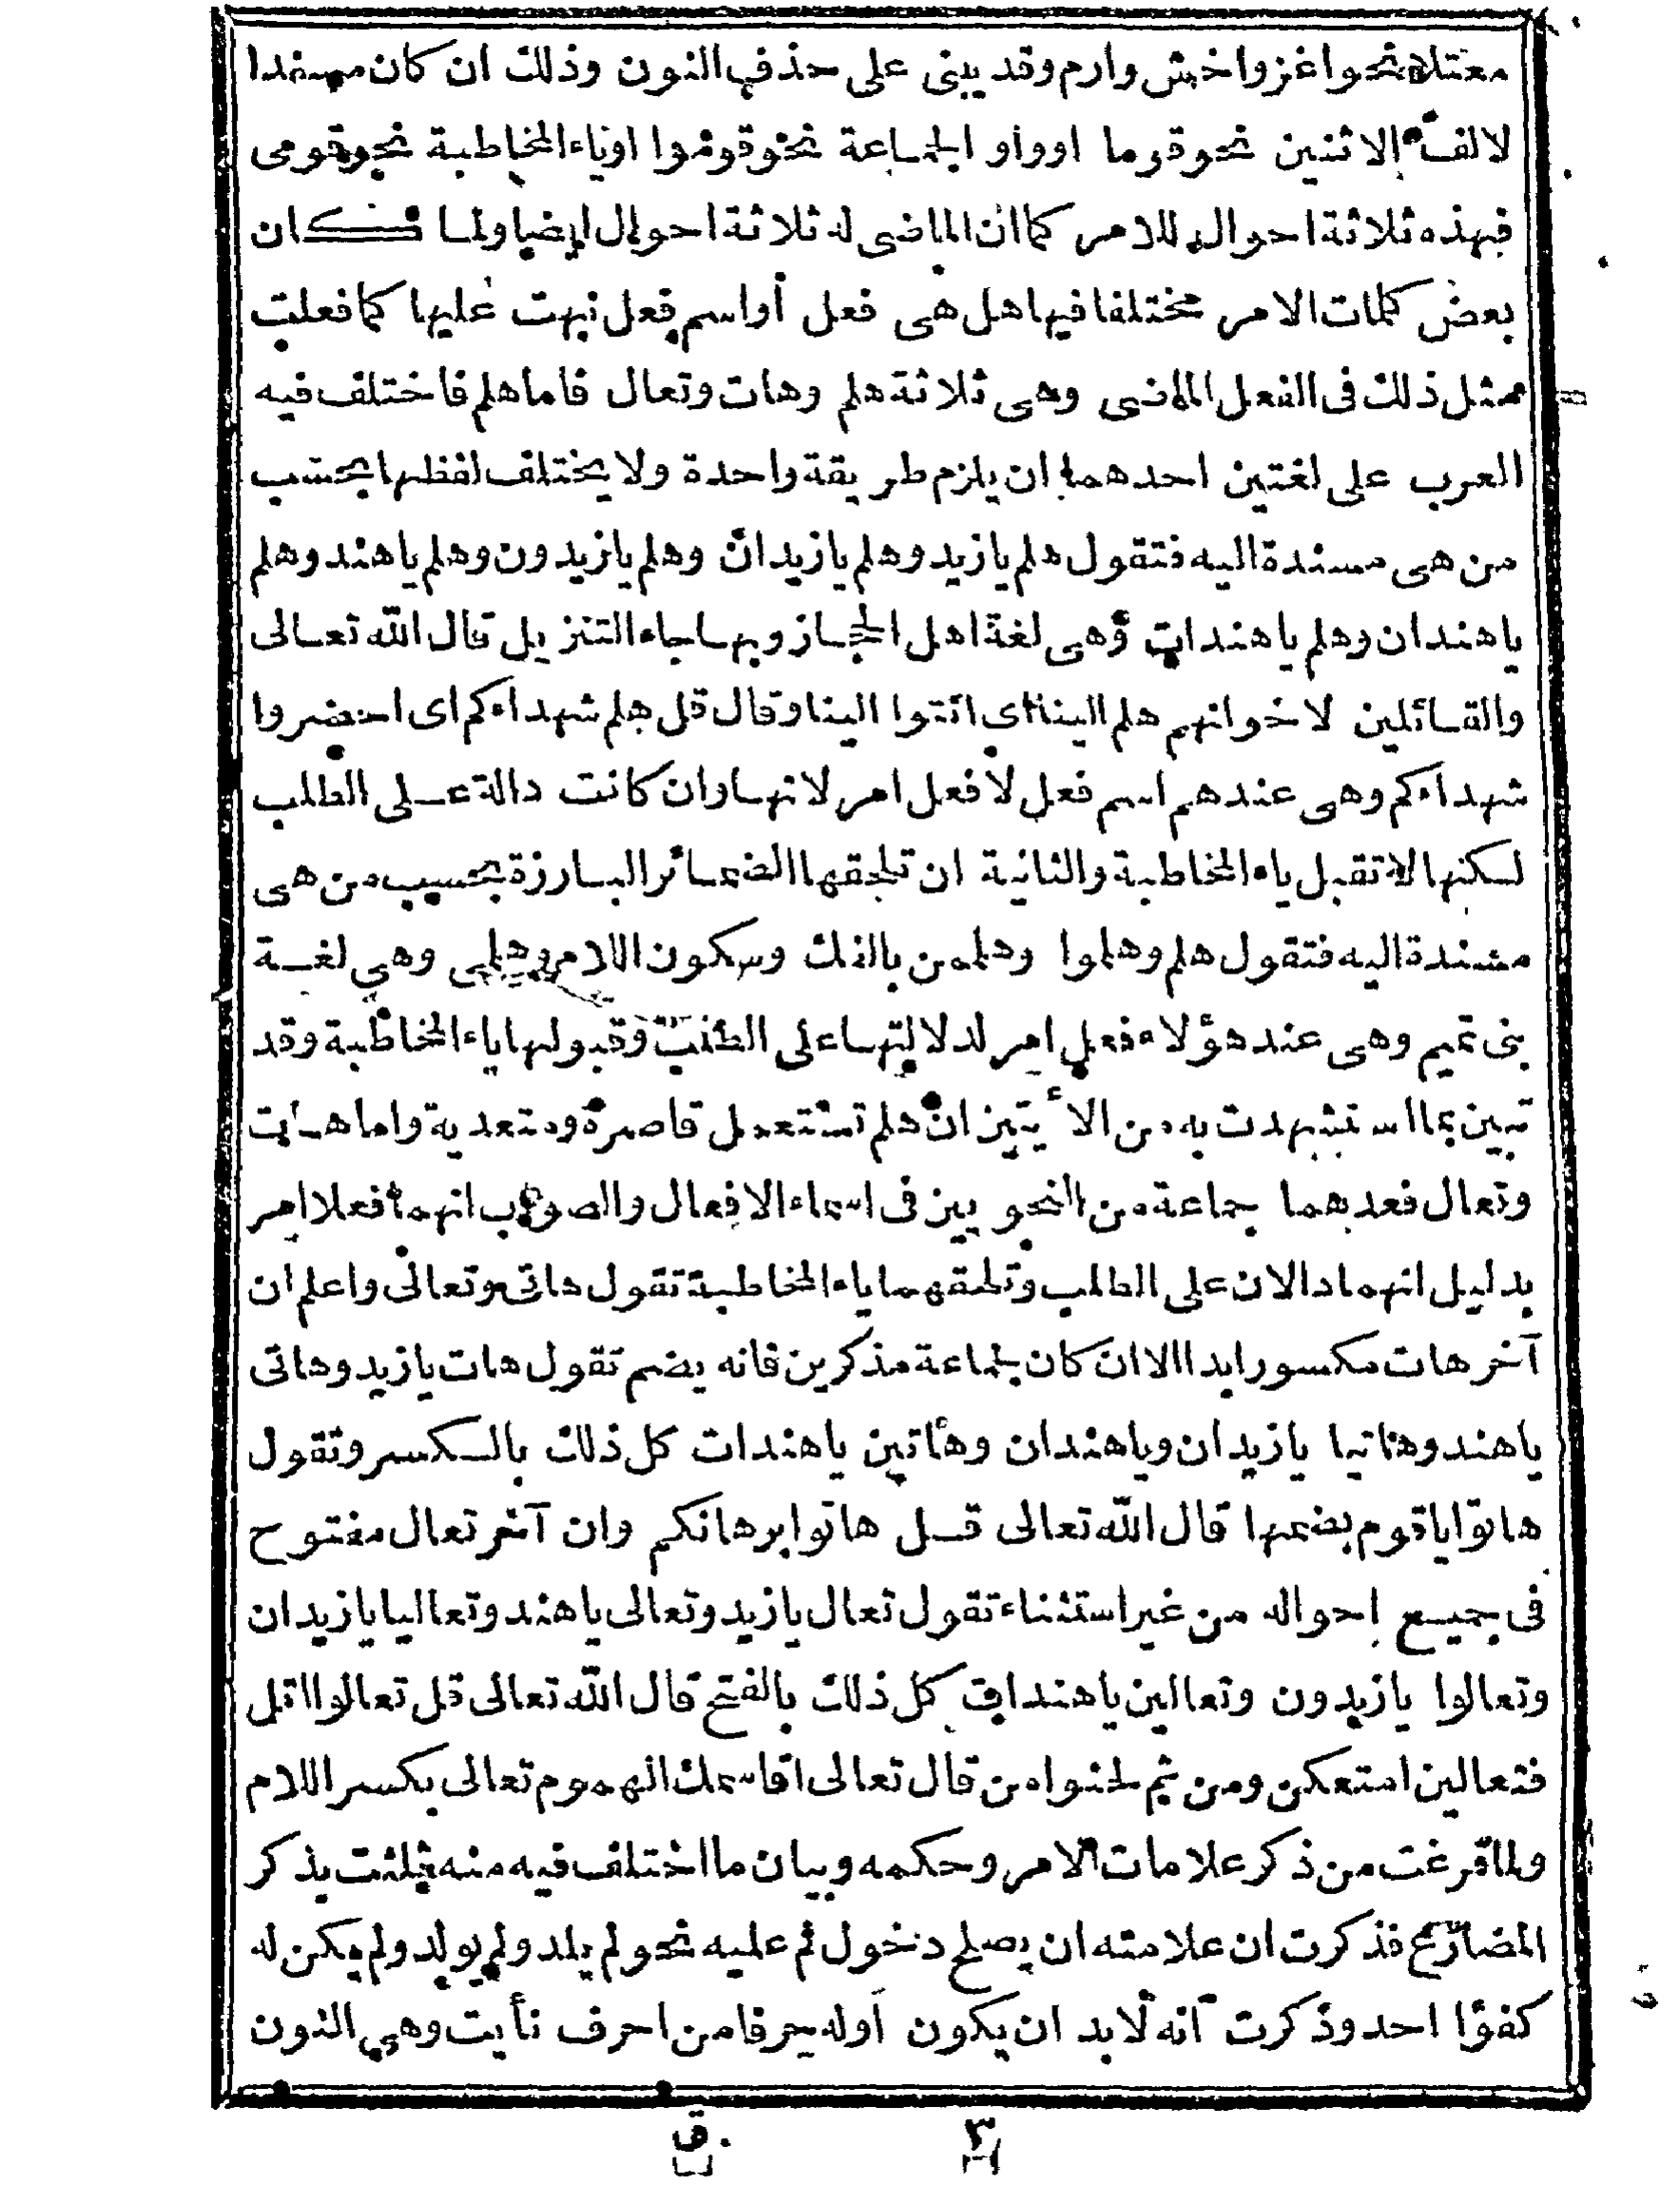 معتلا نحو اغز واخش وارم وقد يبنى على حذف النون وذلك ان كان مسندا
لالف الاثنين نحو قوما او واو الجماعة نحو قوموا او ياء المخاطبة نحو قومى
فهذه ثلاثة احوال للامر كما ان الماضى له ثلاثة احوال ايضا ولما كان
بعض كلمات الامر مختلفا فيها هل هى فعل أو اسم فعل نبهت عليها كما فعلت
مثل ذلك فى الفعل الماضى وهى ثلاثة هلم وهات وتعال فاما هلم فاختلف فيه
العرب على لغتين احدهما ان يلزم طريقة واحدة ولا يختلف لفظها بحسب
من هى مسندة اليه فتقول هلم يا زيد وهلم يا زيدان وهلم يا زيدون وهلم يا هند وهلم
يا هندان وهلم يا هندات وهى لغة اهل الحجاز وبها جاء التنزيل قال الله تعالى
والقائلين لاخوانهم هلم الينا اى ائتوا الينا وقال قل هلم شهداءكم اى احضروا
شهداءكم وهى عندهم اسم فعل لا فعل امر لانها وان كانت دالة على الطلب
لكنها لا تقبل ياء المخاطبة والثانية ان تلحقها الضمائر البارزة بحسب من هى
مسندة اليه فتقول هلم وهلما وهلموا وهلممن بالفك وسكون اللام وهلمى وهى لغة
بنى تميم وهى عند هؤلاء فعل امر لدلالتها على الطلب وقبولها ياء المخاطبة وقد
تبين بما استشهدت به من الأيتين ان هلم تستعمل قاصرة ومتعدية واما هات
وتعال فعدهما جماعة من النحويين فى اسماء الافعال والصواب انهما فعلا امر
بدليل انهما دالان على الطلب وتلحقهما ياء المخاطبة تقول هاتى وتعالى واعلم ان
آخر هات مكسور ابدا الا ان كان لجماعة مذكرين فانه يضم تقول هات يا زيد وهاتى
يا هند وهاتيا يا زيدان ويا هندان وهاتين يا هندات كل ذلك بالكسر وتقول
هاتوا يا قوم بضمها قال الله تعالى قل هاتوا برهانكم وان آخر تعال مفتوح
فى جميع احواله من غير استثناء تقول تعال يا زيد وتعالى يا هند وتعاليا يا زيدان
وتعالوا يا زيدون وتعالين يا هندات كل ذلك بالفتح قال الله تعالى قل تعالوا اتل
فتعالين امتعكن ومن ثم لحنوا من قال تعالى اقاسمك الهموم تعالى بكسر اللام
ولما فرغت من ذكر علامات الامر وحكمه وبيان ما اختلف فيه منه ثلثت بذكر
المضارع فذكرت ان علامته ان يصلح دخول لم عليه نحو لم يلد ولم يولد ولم يكن له
كفؤا احد وذكرت أنه لا بد ان يكون أوله حرفا من احرف نأيت وهى النون
٣ ق